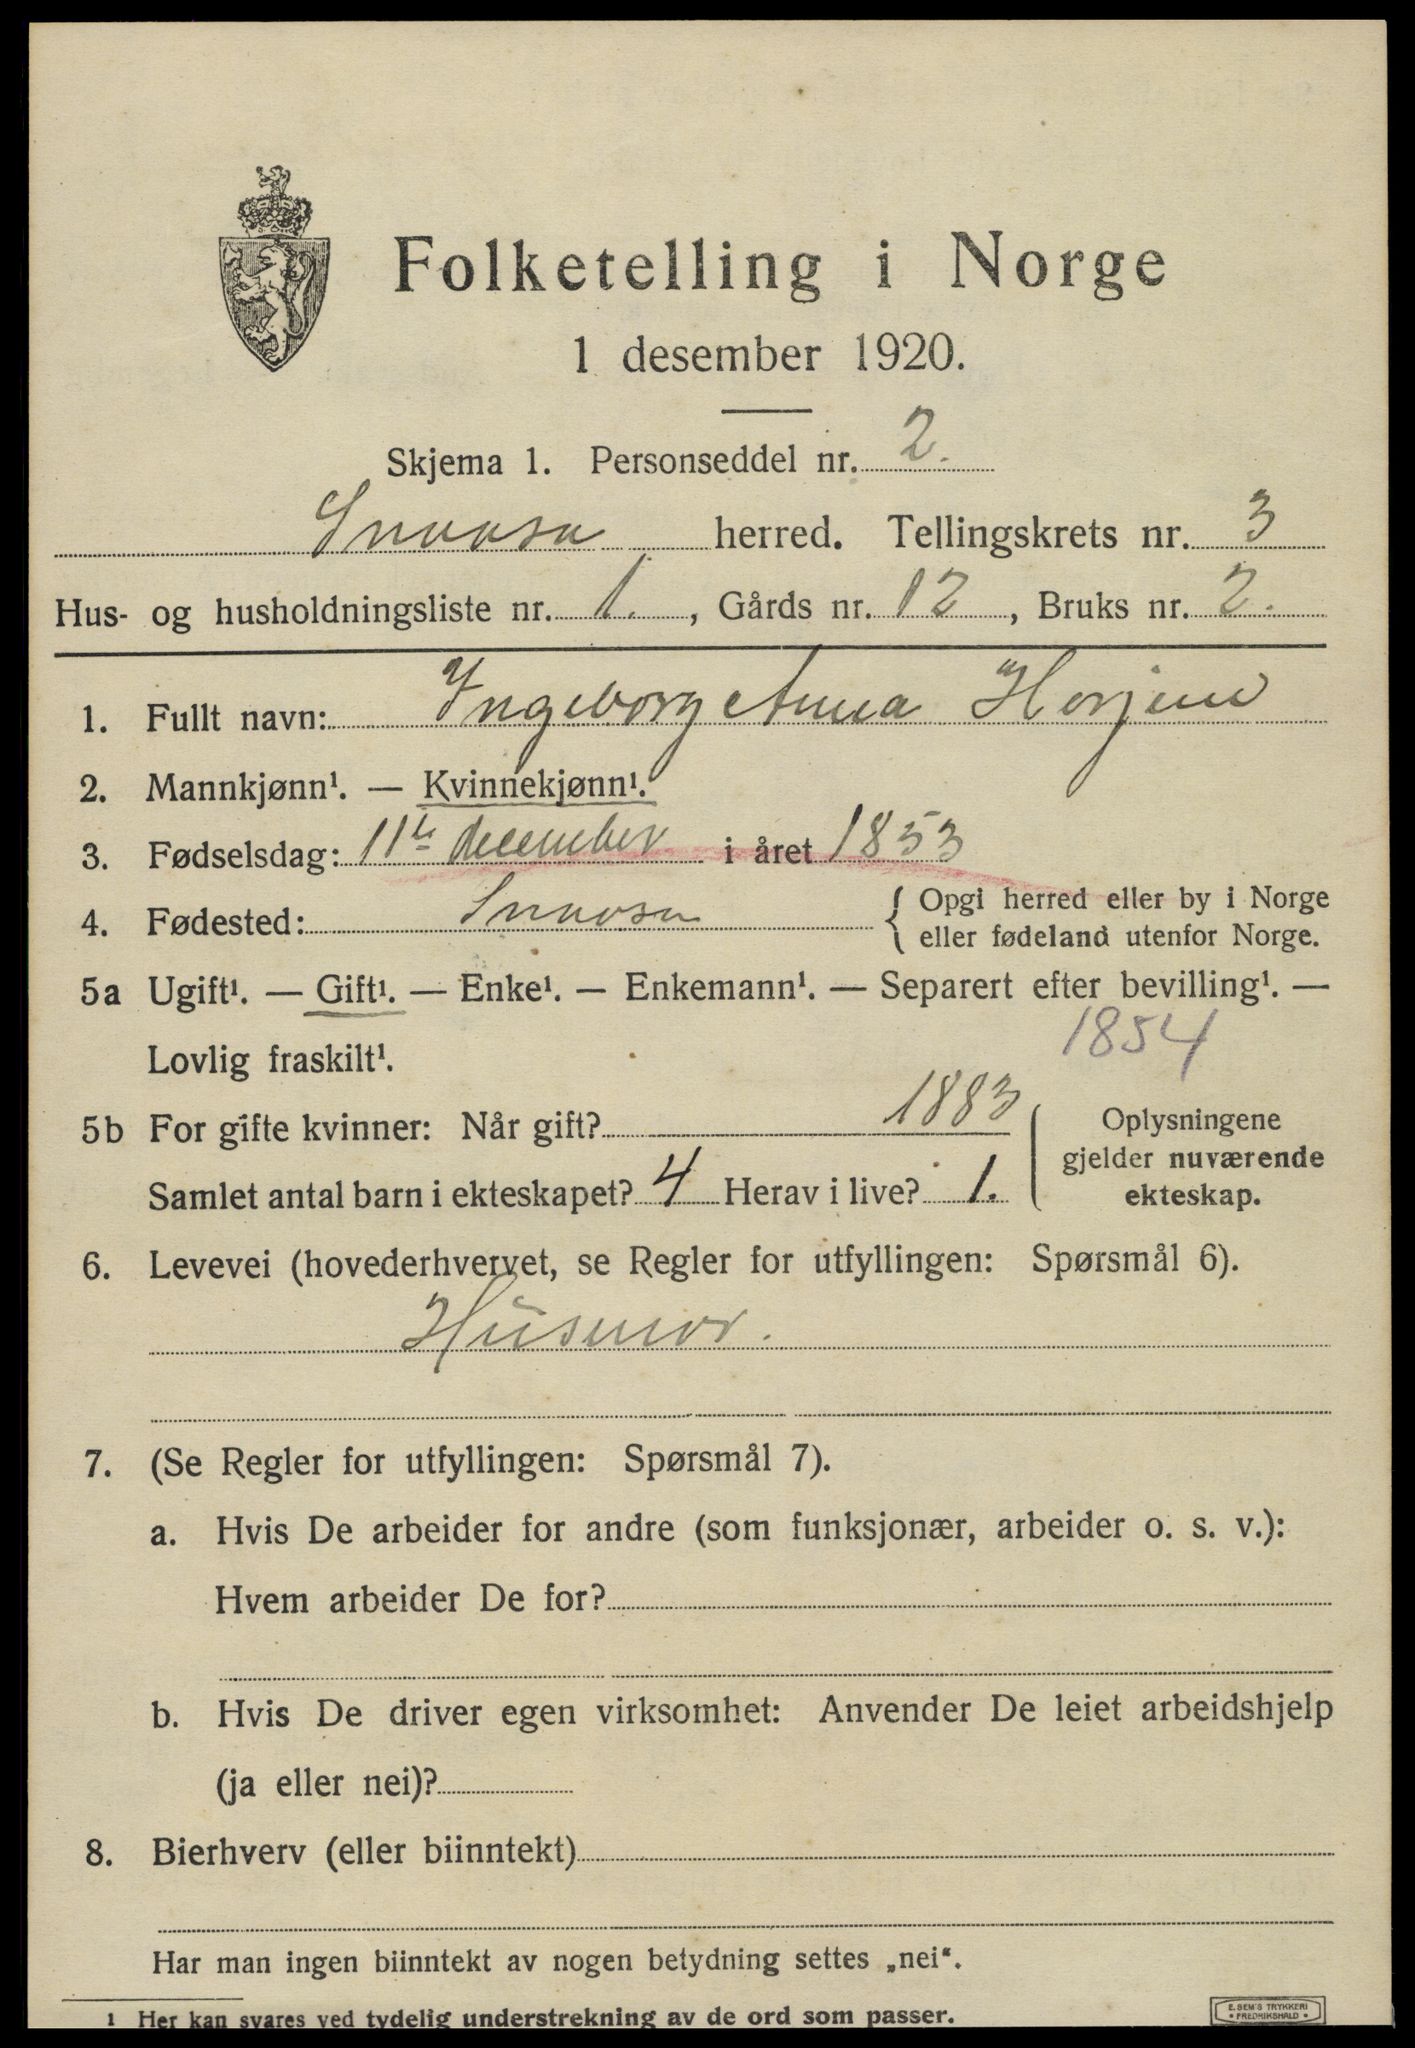 Folketelling i Norge
1 desember 1920.
Skjema 1. Personseddel nr. 2.
Snaasa herred. Tellingskrets nr. 3
Hus- og husholdningsliste nr. 1., Gårds nr. 12, Bruks nr. 2.
1. Fullt navn: Ingeborg Anna Horjem
2. Mannkjønn¹. — Kvinnekjønn¹.
3. Fødselsdag: 11te december i året 1853
4. Fødested: Snaasa { Opgi herred eller by i Norge
eller fødeland utenfor Norge.
5a Ugift¹. — Gift¹. — Enke¹. — Enkemann¹. — Separert efter bevilling¹. —
1854
Lovlig fraskilt¹.
5b For gifte kvinner: Når gift? 1883
Samlet antal barn i ekteskapet? 4 Herav i live? 1.
Oplysningene
gjelder nuværende
ekteskap.
6. Levevei (hovederhvervet, se Regler for utfyllingen: Spørsmål 6).
Husmor.
7. (Se Regler for utfyllingen: Spørsmål 7).
a. Hvis De arbeider for andre (som funksjonær, arbeider o. s. v.):
Hvem arbeider De for?
b. Hvis De driver egen virksomhet: Anvender De leiet arbeidshjelp
(ja eller nei)?
8. Bierhverv (eller biinntekt)
Har man ingen biinntekt av nogen betydning settes „nei“.
1 Her kan svares ved tydelig understrekning av de ord som passer.
E. SEM'S TRYKKERI
• FREDRIKSHALD •